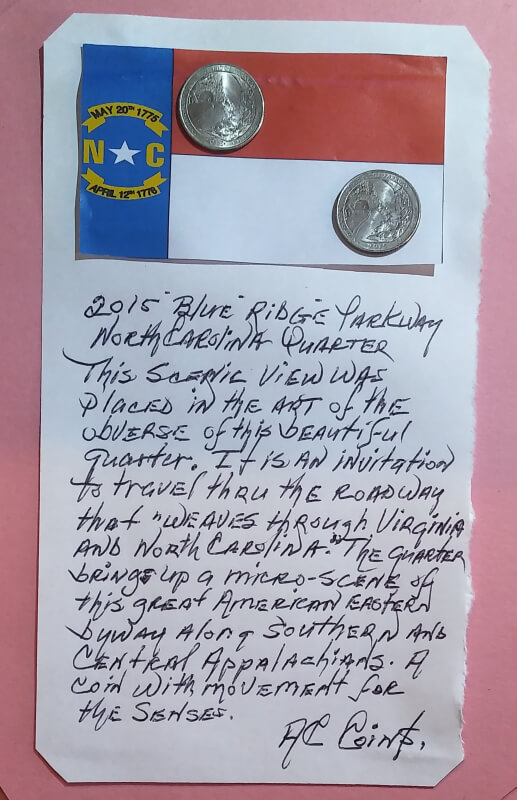 MAY 20TH 1775
N C
APRIL 12TH 1776
2015 "Blue Ridge Parkway
North Carolina Quarter
This Scenic View was
placed in the art of the
obverse of this beautiful
quarter. It is an invitation
to travel thru the roadway
that "weaves through Virginia
and North Carolina." The quarter
brings up a micro-scene of
this great American Eastern
byway along Southern and
Central Appalachians. A
coin with movement for
the senses.
AC Coin$.